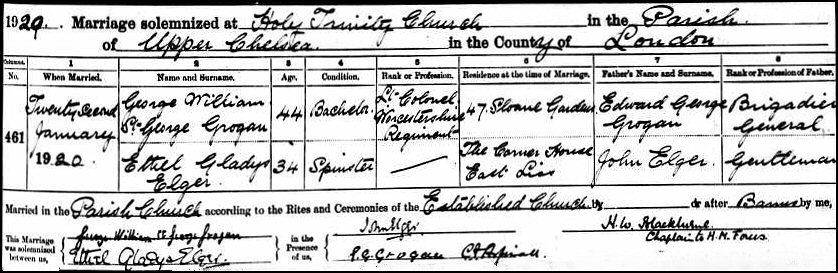 1920. Marriage solemnized at Holy Trinity Church in the Parish
of Upper Chelsea in the County of London
Columns 1 2 3 4 5 6 7 8
No. When Married. Name and Surname. Age. Condition. Rank or Profession. Residence at the time of Marriage. Father's Name and Surname. Rank or Profession of Father.
461 Twenty Second January 1920 George William St. George Grogan 44 Bachelor Lt. Colonel Worcestershire Regiment 47. Sloane Gardens Edward George Grogan Brigadier General
Ethel Gladys Elger 34 Spinster — The Corner House East Liss John Elger Gentleman
Married in the Parish Church according to the Rites and Ceremonies of the Established Church by or after Banns by me,
This Marriage was solemnized between us, George William St George Grogan in the Presence of us, John Elger H. W. Blackburne
Ethel Gladys Elger E. G. Grogan Chaplain to H. M. Forces